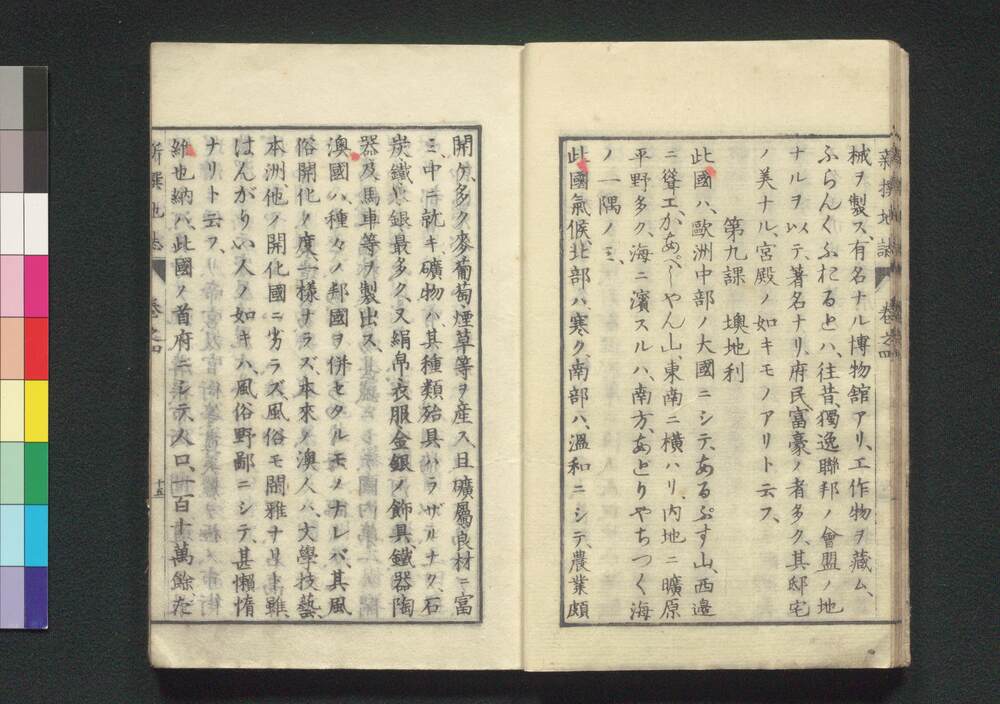 新撰地誌 卷之四
械ヲ製ス、有名ナル博物館アリ、工作物ヲ藏ム、
ふらんくふおるとハ、往昔、獨逸聯邦ノ會盟ノ地
ナルヲ以テ、著名ナリ、府民富豪ノ者多ク、其邸宅
ノ美ナル、宮殿ノ如キモノアリト云フ、
第九課 墺地利
此國ハ、歐洲中部ノ大國ニシテ、あるぷす山、西邊
ニ聳エ、かあぺしやん山東南ニ橫ハリ、內地ニ曠原
平野多ク、海ニ濱スルハ、南方、あどりやちつく海
ノ一隅ノミ、
此國氣候、北部ハ、寒ク、南部ハ、溫和ニシテ、農業頗
開ケ、多ク麥葡萄煙草等ヲ産ス、且礦屬良材ニ富
ミ、中ニ就キ、礦物ハ、其種類殆具ハラザルナク、石
炭鐵銀最多ク、又絹帛衣服金銀ノ飾具鐵器陶
器及馬車等ヲ製出ス、
澳國ハ、種々ノ邦國ヲ併セタルモノナレバ、其風
俗開化ノ度、一樣ナラズ、本來ノ澳人ハ、大學技藝、
本洲他ノ開化國ニ劣ラズ、風俗モ閑雅ナリト雖、
はんがりい人ノ如キハ、風俗野鄙ニシテ、甚懶惰
ナリト云フ、
維也納ハ、此國ノ首府ニシテ、人口、百十萬餘た
新撰地誌 卷之四 十五